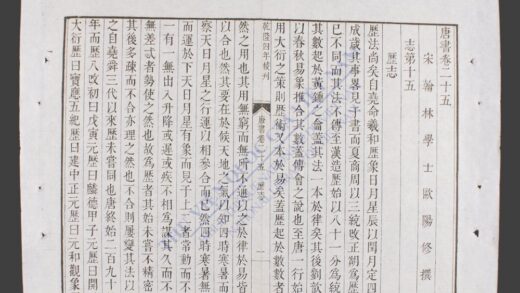 唐書卷二十五
宋翰林學士歐陽修撰
志第十五
歷志
歷法尚矣自堯命羲和歷象日月星辰以閏月定四
成歲其事畧見于書而夏商周以三統改正朔為歷
已不同而其法不傳至漢造歷始以八十一分為統
其數起於黃鍾之龠蓋其法一本於律矣其後劉歆
以春秋易象推合其數蓋傅會之說也至唐一行始
用大衍之策則歷術又本於易矣蓋歷起於數數者
乾隆四年校刊
唐書卷二十五 歷志
一
然之用也其用無窮而無所不通以之於律於易皆
以合也然其要在於候天地之氣以知四時寒暑而
察天日月星之行運以相參合而已然四時寒暑無
而運於下天日月星有象而見于上二者常動而不
一有一無出入升降或遲或疾不相為謀其久而不
無差忒者勢使之然也故為歷者其始未嘗不精密
其後多疎而不合亦理之然也不合則屢變其法以
之自堯舜三代以來歷未嘗同也唐終始二百九十
年而歷八改初曰戊寅元歷曰麟德甲子元歷曰開
大衍歷曰寶應五紀歷曰建中正元歷曰元和觀象